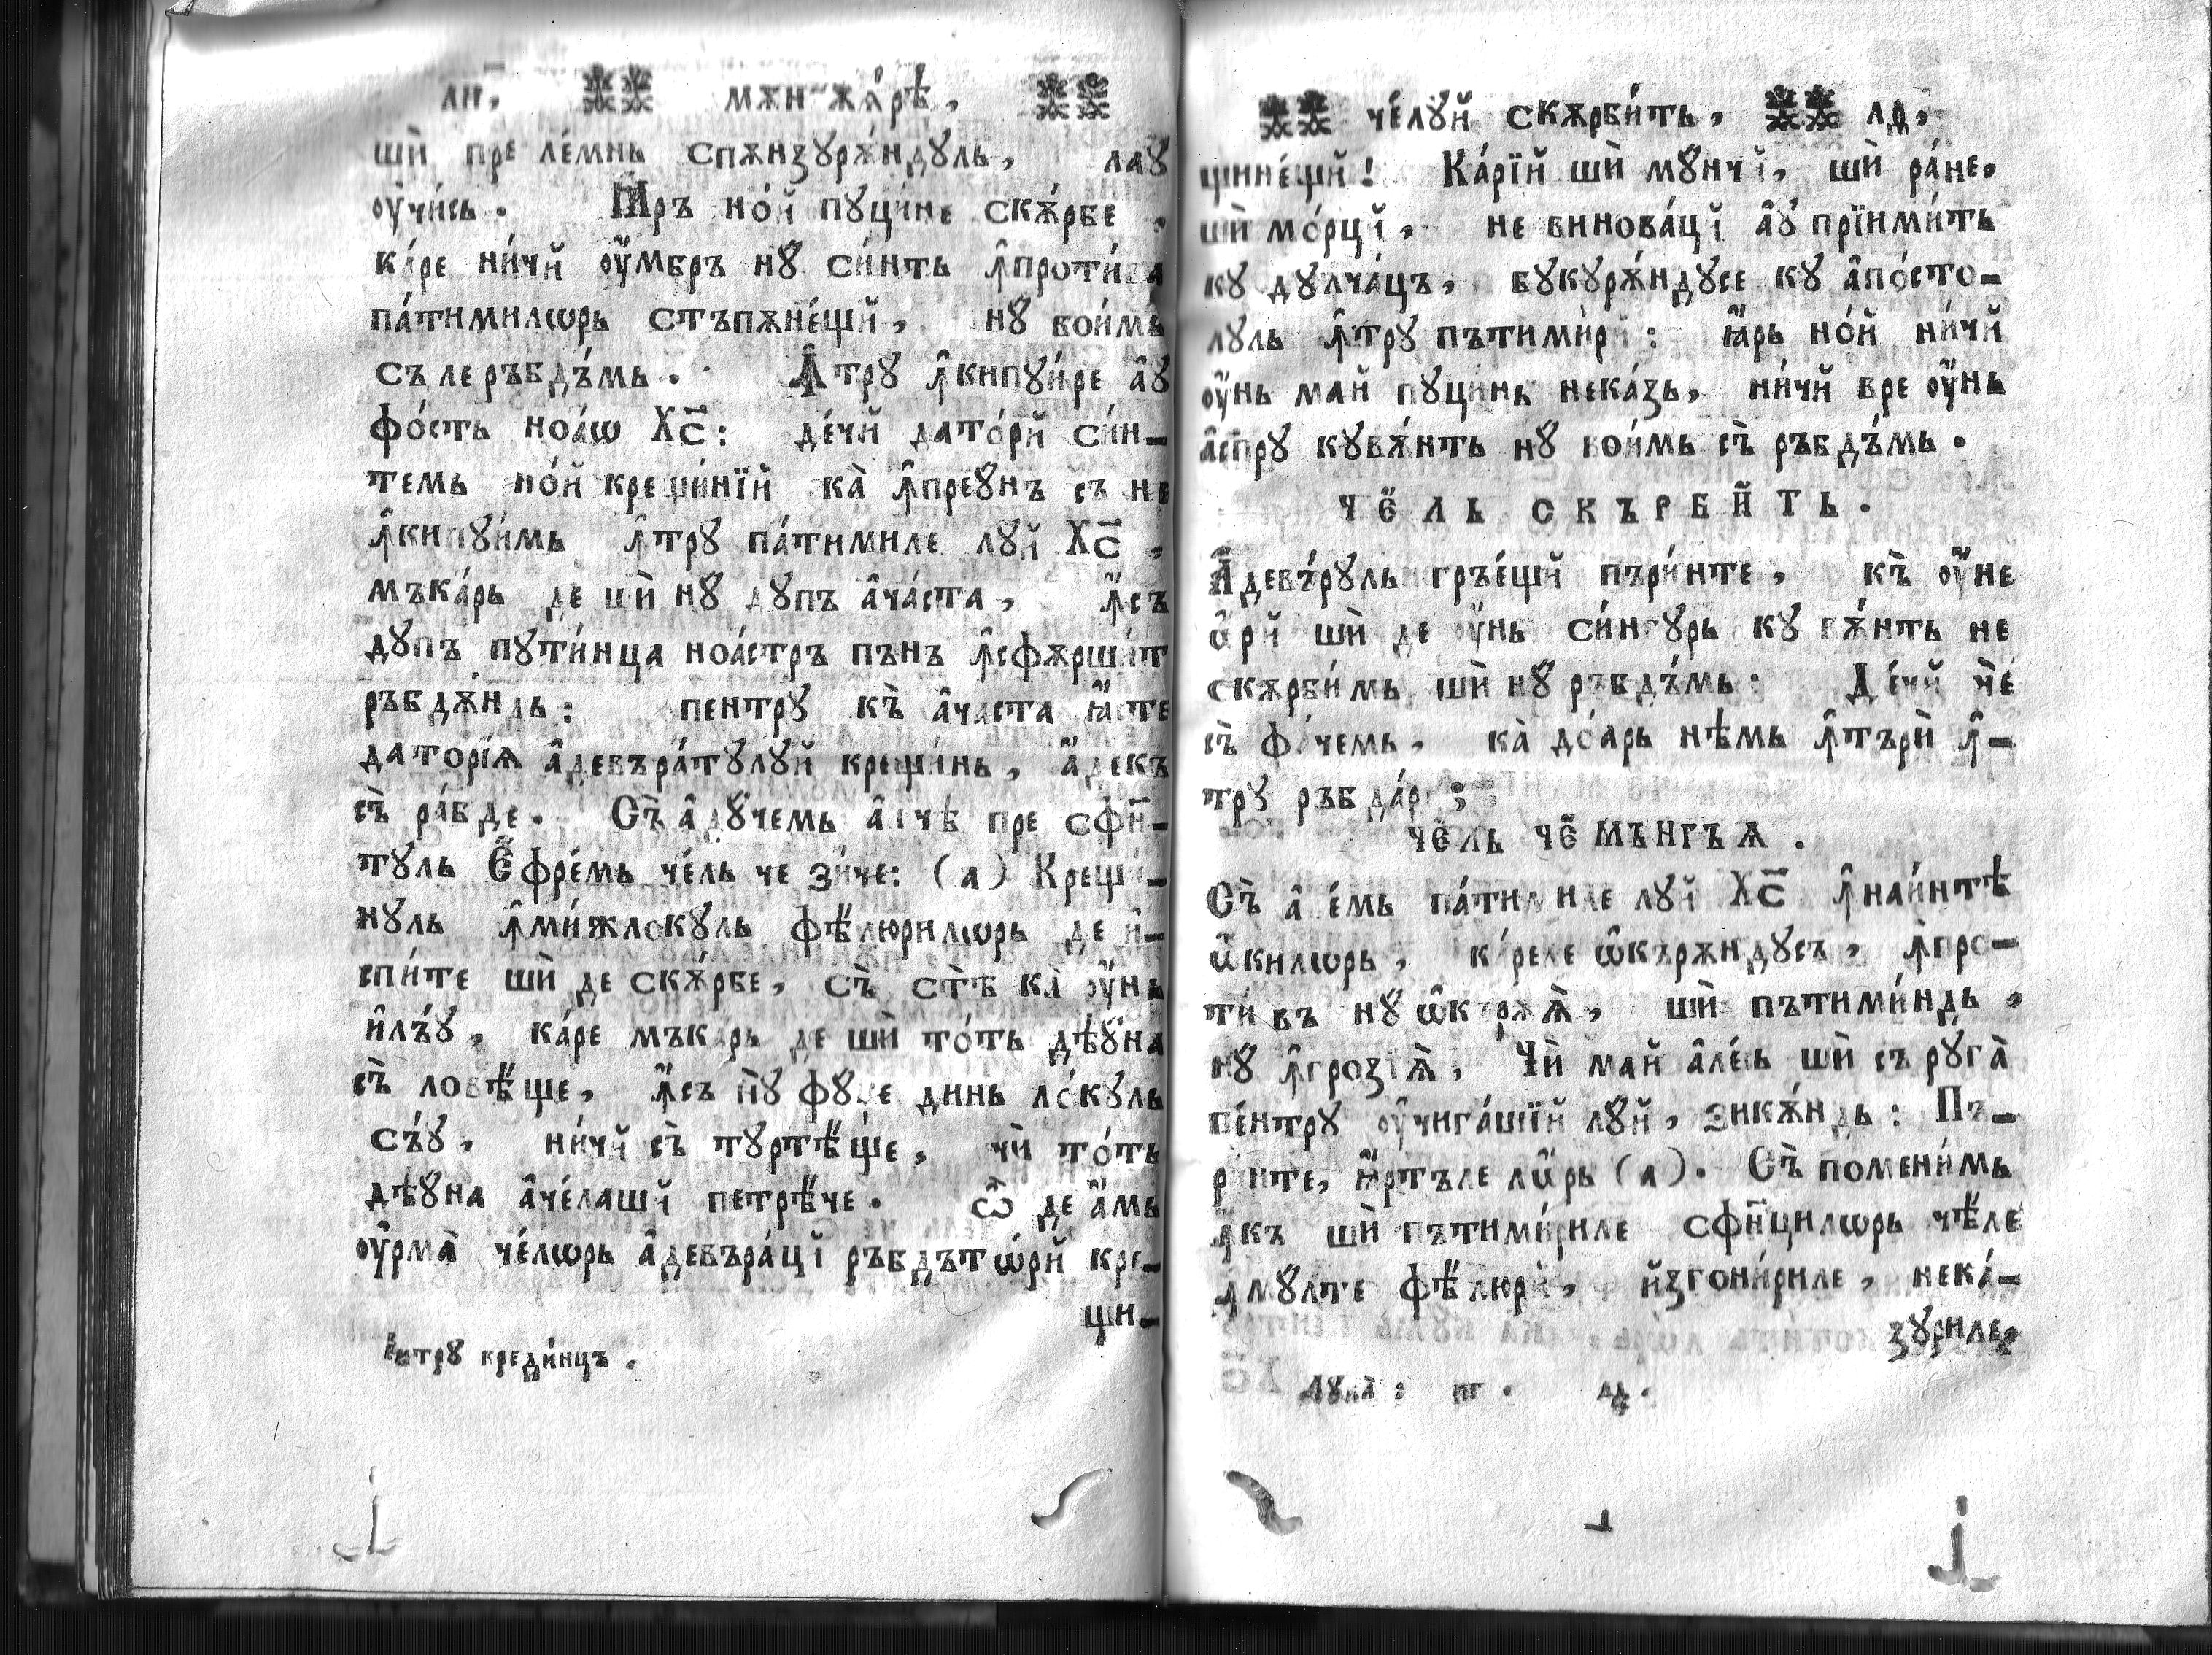 ли, мѫн꙼жѧ́рѣ,
шѝ пре ле́мнь спѫнзꙋрѫ́ндꙋль, лаꙋ
оу҆чи́сь. Ꙗръ но́й пꙋци́не скѫ́рбе,
ка́ре ни́чй оу҆́мбръ нꙋ си́нть ꙟ҆проти́ва
па́тимилѡрь стъпѫне́щй, нꙋ вои́мь
съ ле ръбдъ́мь. Ꙟтрꙋ ꙟ҆кипꙋи́ре а҆ꙋ
фо́сть ноа́ѡ Хс҃: де́чй дато́рй си́н-
темь но́й крещи́нїй ка̀ ꙟ҆преꙋнъ съ не
ꙟ҆кипꙋи́мь ꙟ҆трꙋ па́тимиле лꙋй Хс҃,
мъка́рь де шѝ нꙋ дꙋпъ а҆ча́ста, ꙟ҆́съ
дꙋпъ пꙋти́нца ноа́стръ пънъ ꙟ҆сфѫрши́т
ръбдѫ́ндь: пентрꙋ къ̀ а҆часта ꙗ҆́сте
даторі́ѧ а҆девъра́тꙋлꙋй крещи́нь, а҆́декъ
съ̀ ра́бде. Съ̀ а҆дꙋ́чемь а҆и́чѣ пре сфн҃-
тꙋль Е҆фре́мь че́ль че зи́че: (а) Крещи́-
нꙋль ꙟ҆ми́жлокꙋль фѣ́люрилѡрь де и҆-
спи́те шѝ де скѫ́рбе, съ̀ стѣ̀ ка̀ оу҆́нь
и҆лъ́ꙋ, ка́ре мъкарь де шѝ то́ть дѣ́ꙋна
съ̀ ловѣ́ще, ꙟ҆́съ нꙋ̀ фꙋ́ѱе динь ло́кꙋль
съ́ꙋ, ни́чй съ̀ тꙋртѣ́ще, чѝ то́ть
дѣ́ꙋна а҆че́лашй петрѣ́че. Ѽ де а҆́мь
оу҆рма̀ че́лѡрь а҆девъра́цй ръбдътѡ́рй кре-
щи-
е҆нтрꙋ креди́нцъ.
че́лꙋй скѫрби́ть, лд,
щине́щй! Ка́рїй шѝ мꙋ́нчй, шѝ ра́не,
шѝ мо́рцй, не винова́цй а҆ꙋ прїими́ть
кꙋ дꙋлча́цъ, бꙋкꙋрѫ́ндꙋсе кꙋ а҆по́сто-
лꙋль ꙟ҆трꙋ пътими́рй: ꙗ҆́рь но́й ни́чй
оу҆́нь май пꙋци́нь нека́зь, ни́чй вре оу҆́нь
а҆́спрꙋ кꙋвѫ́нть нꙋ вои́мь съ̀ ръбдъ́мь.
Че́ль скърби́ть.
А҆девъ́рꙋль гръе́щй пъри́нте, къ̀ оу҆́не
ѡ҆рй шѝ де оу҆́нь си́нгꙋрь кꙋвѫ́нть не
скѫрби́мь шѝ нꙋ ръбдъ́мь: Де́чй чѐ
съ̀ фа́чемь, ка̀ до́арь нѣмь ꙟ҆търѝ ꙟ҆-
трꙋ ръбда́ре;
че́ль че мънгъѧ.
Съ̀ а҆вемь па́тимиле лꙋй Хс҃ ꙟ҆наи́нтѣ
ѡ҆́килѡрь, ка́реле ѡ҆кърѫндꙋсъ, ꙟ҆про-
ти́въ нꙋ ѡ҆кърѫѧ̀, шѝ пътими́ндь,
нꙋ ꙟ҆грозїѧ̀, Чѝ май а҆ле́сь шѝ съ рꙋга̀
пе́нтрꙋ оу҆чига́шїй лꙋй, зикѫ́ндь: Пъ-
ринте, ꙗ҆́ртъле лѡ́рь (а). Съ̀ помени́мь
ꙟ҆къ шѝ пътими́риле сфн҃цилѡрь чѣ́ле
ꙟ҆мꙋ́лте фѣ́люрй, и҆згони́риле, нека́-
зꙋриле,
Лꙋка: кг. лд.